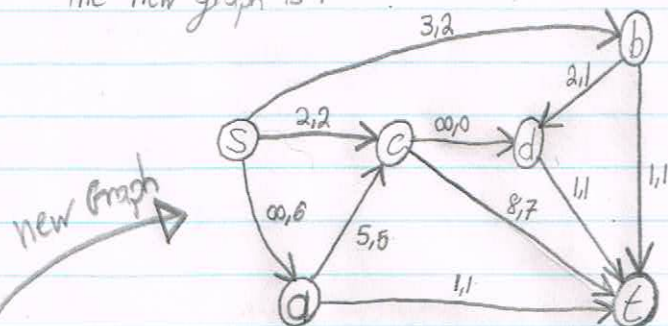 The new graph is :
3,2
b
2,1
S
2,2
c
∞,0
d
1,1
1,1
new Graph
∞,6
5,5
8,7
a
1,1
t